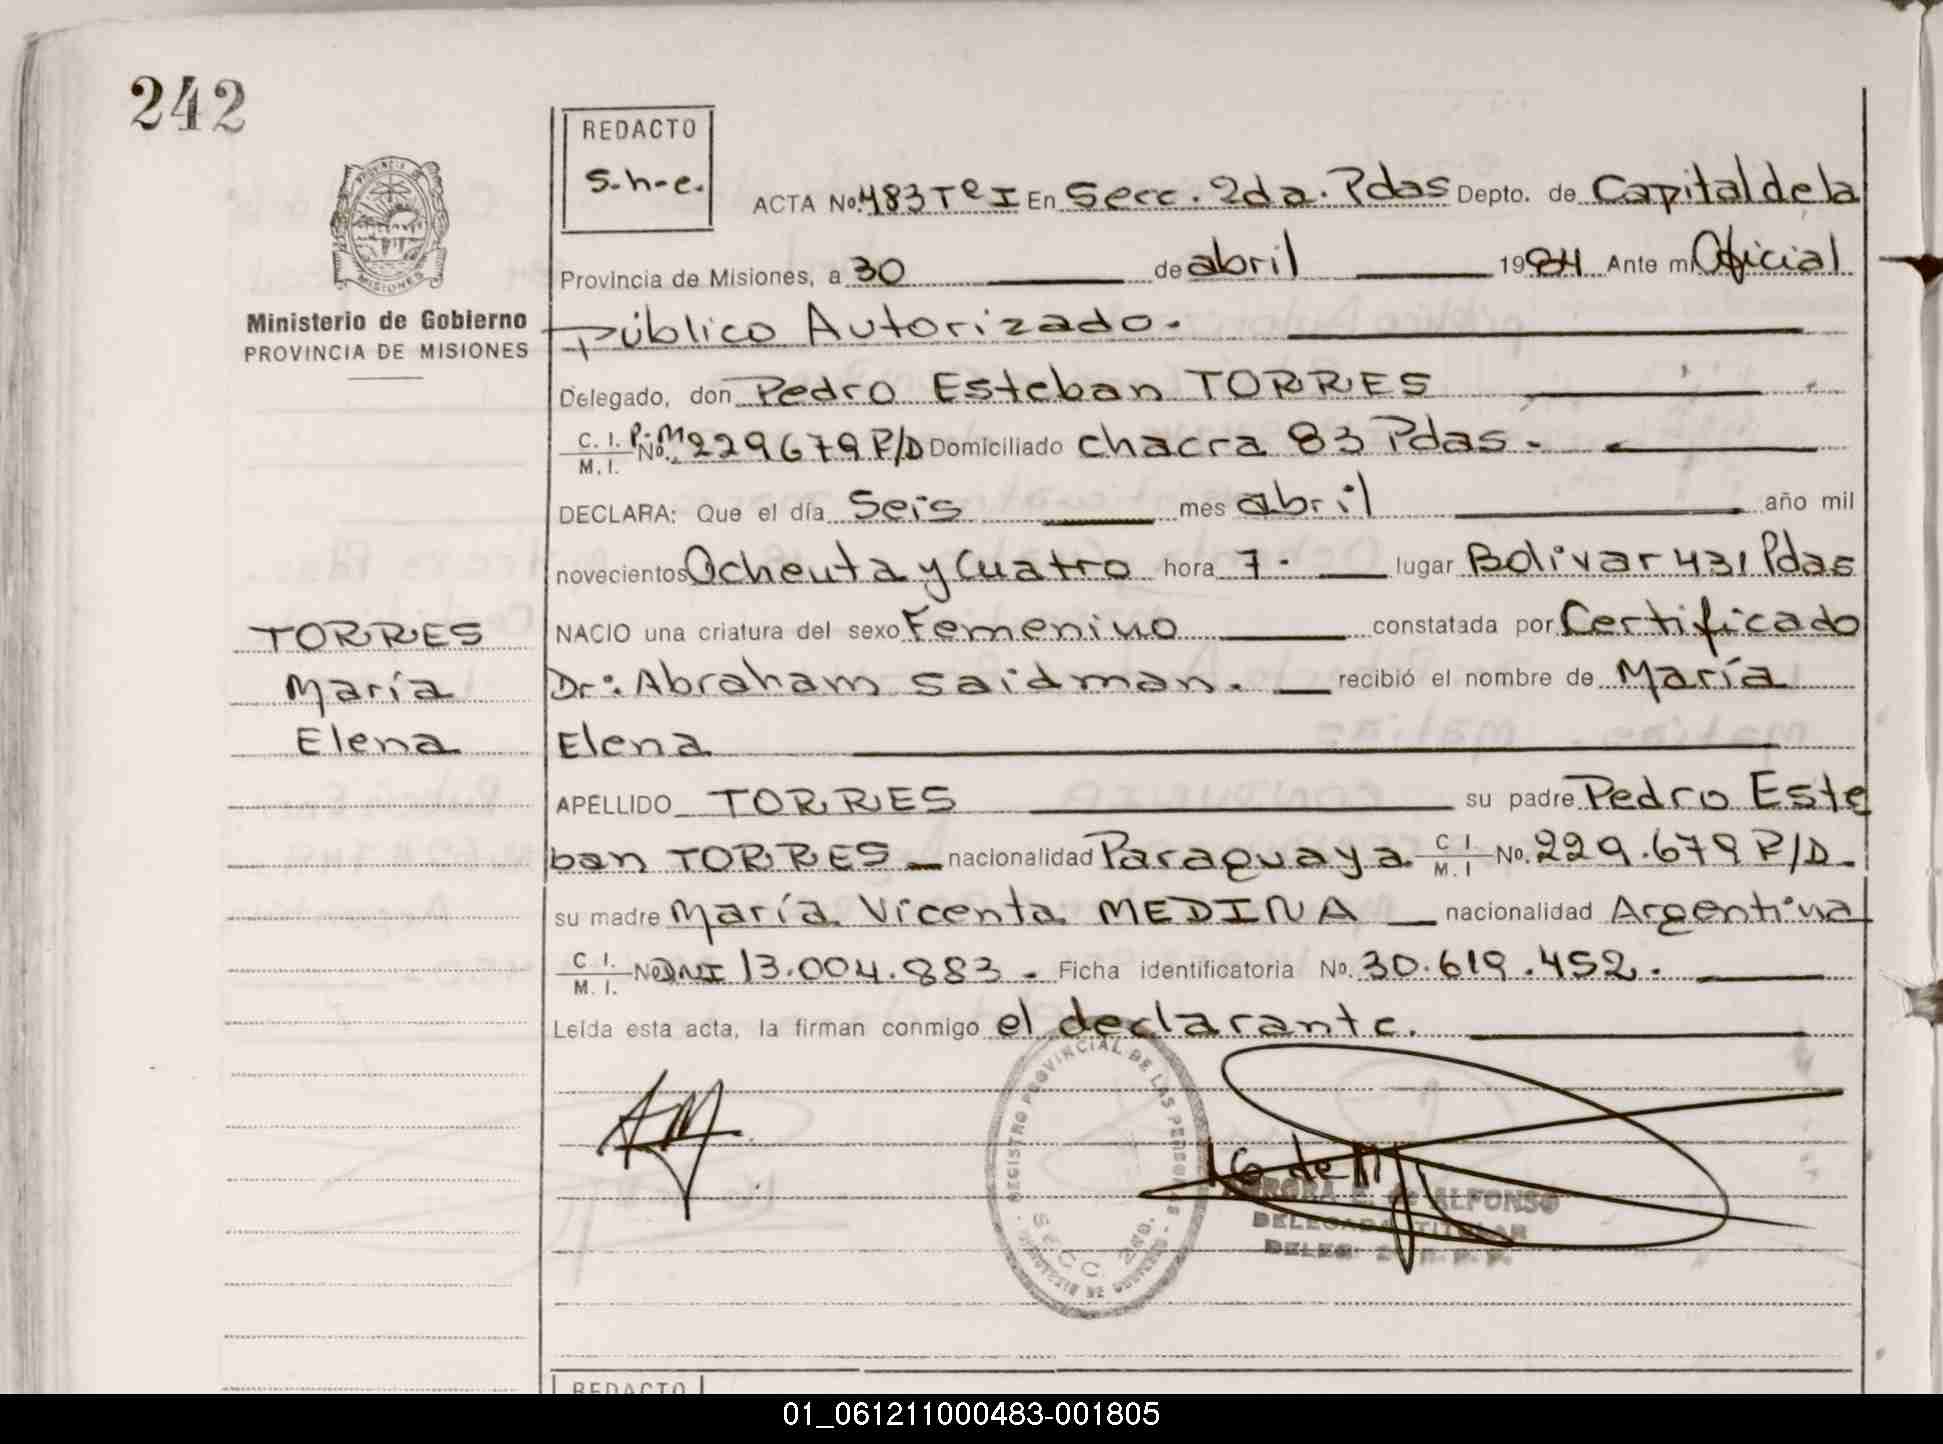 242
REDACTO
s.h.e.
ACTA No. 483 Tº I En Secc. 2da. Pdas Depto. de Capital de la
Provincia de Misiones, a 30 de abril 1984 Ante mi Oficial
Público Autorizado.
Ministerio de Gobierno
PROVINCIA DE MISIONES
Delegado, don Pedro Esteban TORRES
C. I. P.M
M. I. No. 229679 P/D Domiciliado chacra 83 Pdas.
DECLARA: Que el día Seis mes abril año mil
novecientos Ochenta y Cuatro hora 7. lugar Bolivar 431 Pdas
NACIO una criatura del sexo Femenino constatada por Certificado
Dr: Abraham Saidman. recibió el nombre de María
Elena
TORRES
María
Elena
APELLIDO TORRES su padre Pedro Este
ban TORRES nacionalidad Paraguaya C I M. I No. 229.679 P/D.
su madre María Vicenta MEDINA nacionalidad Argentina
C I. M. I. No DNI 13.004.883. Ficha identificatoria No. 30.619.452.
Leída esta acta, la firman conmigo el declarante.
REGISTRO PROVINCIAL DE LAS PERSONAS
SECC. 2da.
ALFONSO
DELEGADA TITULAR
REDACTO
01_061211000483-001805